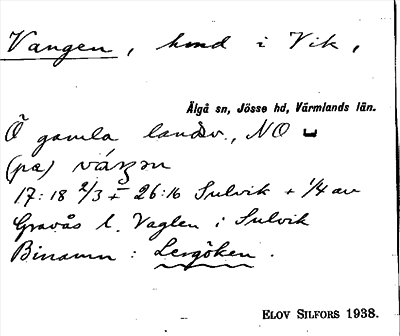 Vangen, hmd i Vik,
Älgå sn, Jösse hd, Värmlands län.
Ö gamla landsv., NO
(pa)
17:18 2/3 + 26:16 Sulvik + 1/4 av
Gravås l. Vaglen i Sulvik
Binamn: Lergöken.
ELOV SILFORS 1938.